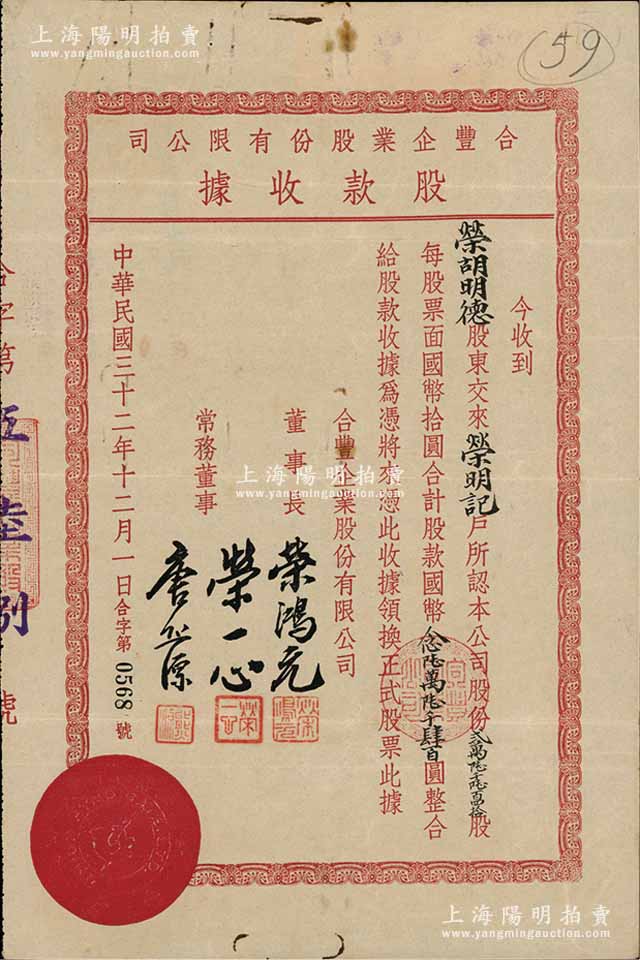 上海陽明拍賣
www.yangmingauction.com
上海陽明拍賣
www.yangmingauction.com
59
合豐企業股份有限公司
股款收據
今收到
榮胡明德股東交來榮明記戶所認本公司股份貳萬陸千陸百肆拾股
每股票面國幣拾圓合計股款國幣念陸萬陸千肆百圓整合
給股款收據爲憑將來憑此收據領換正式股票此據
合豐企業股份有限公司
董事長 榮鴻元
榮一心
常務董事 唐熊源
中華民國三十二年十二月一日合字第0568號
合字第 伍陸捌 號
上海陽明拍賣
www.yangmingauction.com
上海陽明拍賣
www.yangmingauction.com